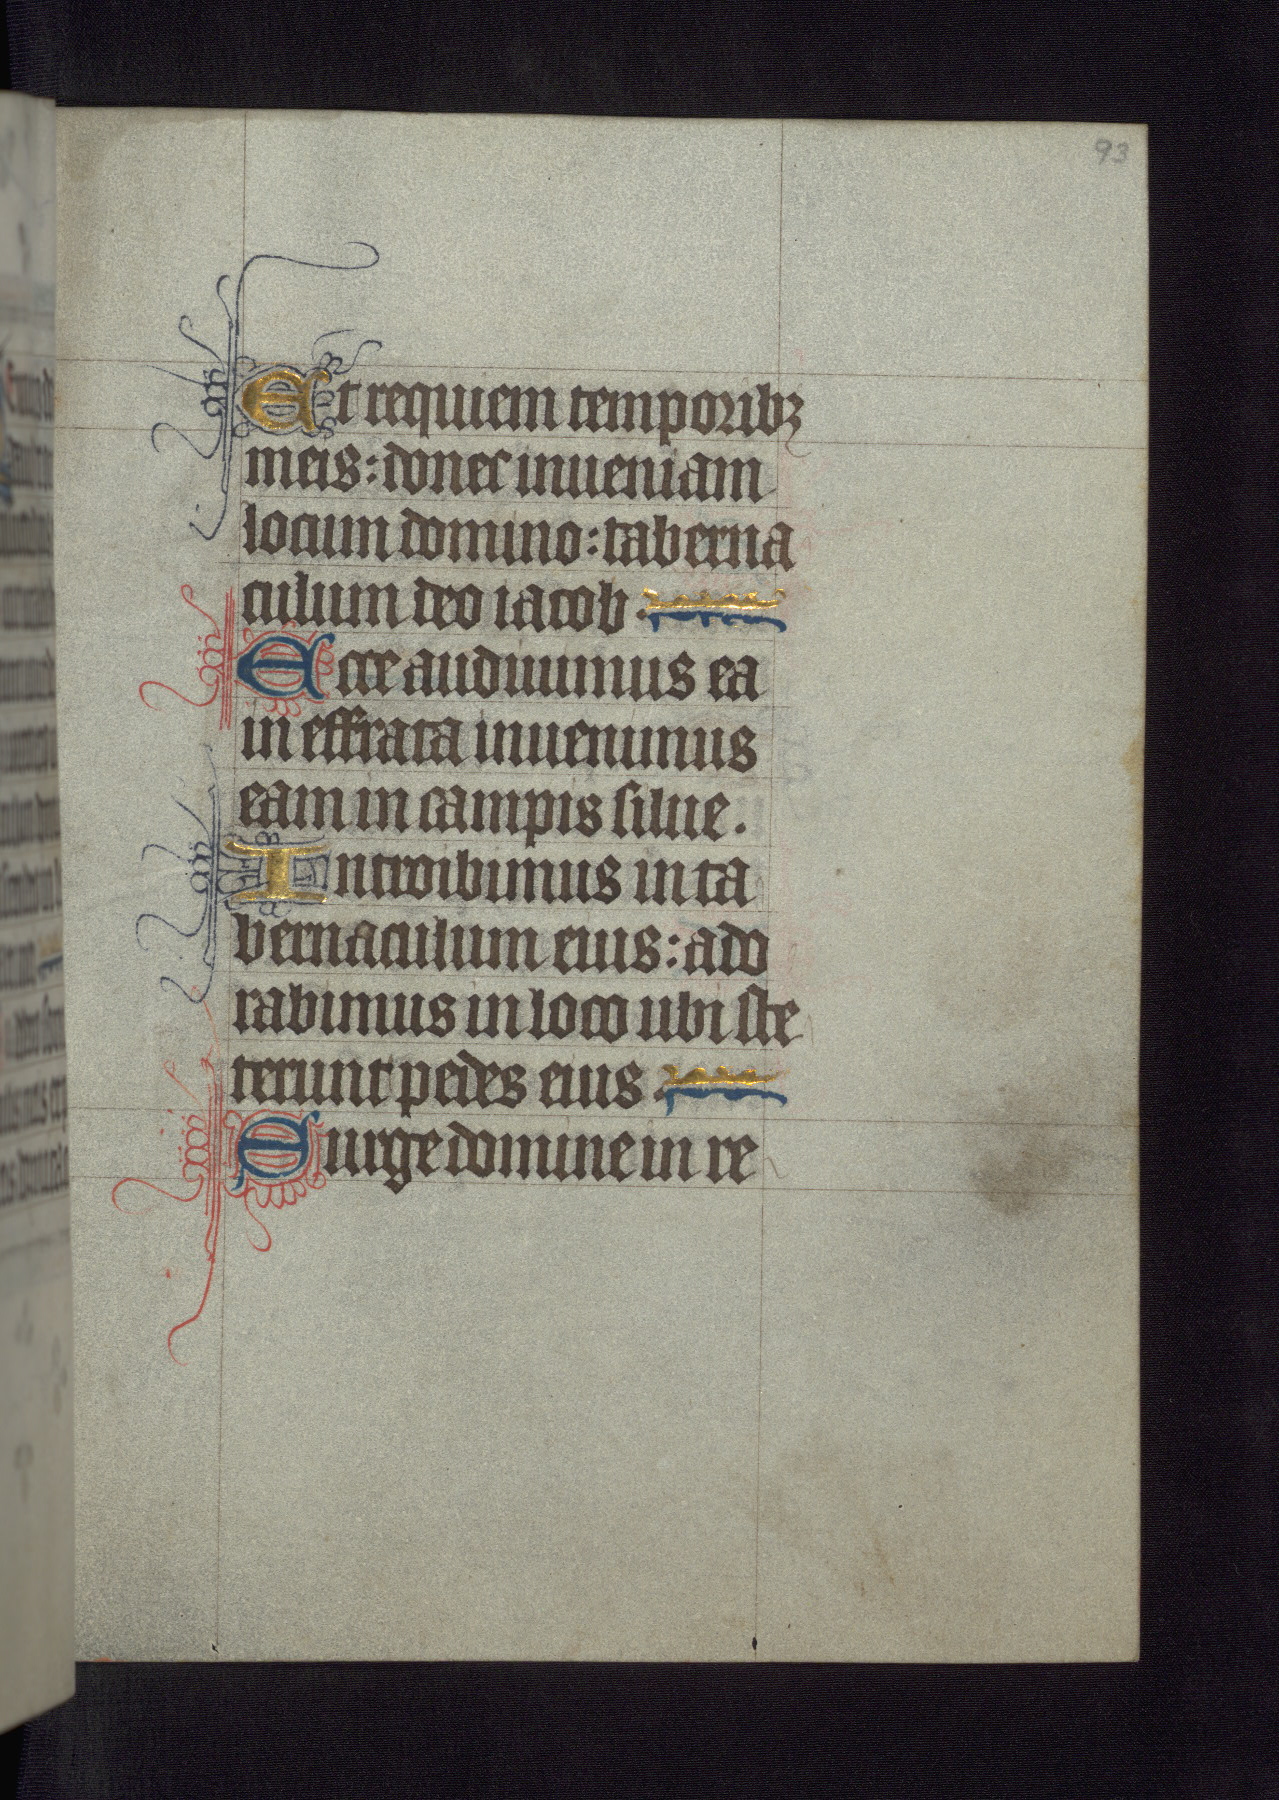 93
Et requiem temporibꝫ
meis: donec inueniam
locum domino: taberna
culum deo iacob.
Ecce audiuimus ea
in effrata inuenimus
eam in campis silue.
Introibimus in ta
bernaculum eius: ado
rabimus in loco ubi ste
terunt pedes eius.
Surge domine in re